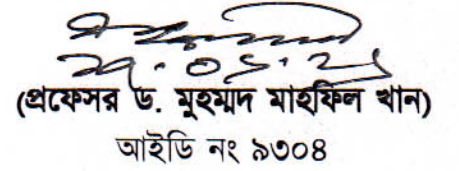 (প্রফেসর ড. মুহম্মদ মাহফিল খান)
আইডি নং ৯৩০৪